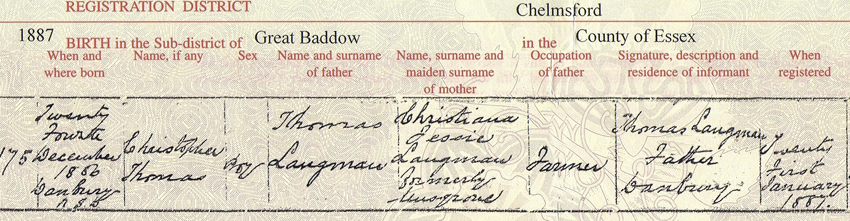 REGISTRATION DISTRICT Chelmsford
1887 BIRTH in the Sub-district of Great Baddow in the County of Essex
When and where born
Name, if any
Sex
Name and surname of father
Name, surname and maiden surname of mother
Occupation of father
Signature, description and residence of informant
When registered
175
Twenty
Fourth
December
1886
Danbury
R.S.D
Christopher
Thomas
Boy
Thomas
Langman
Christiana
Jessie
Langman
formerly
Musgrove
Farmer
Thomas Langman
Father
Danbury
Twenty
First
January
1887.